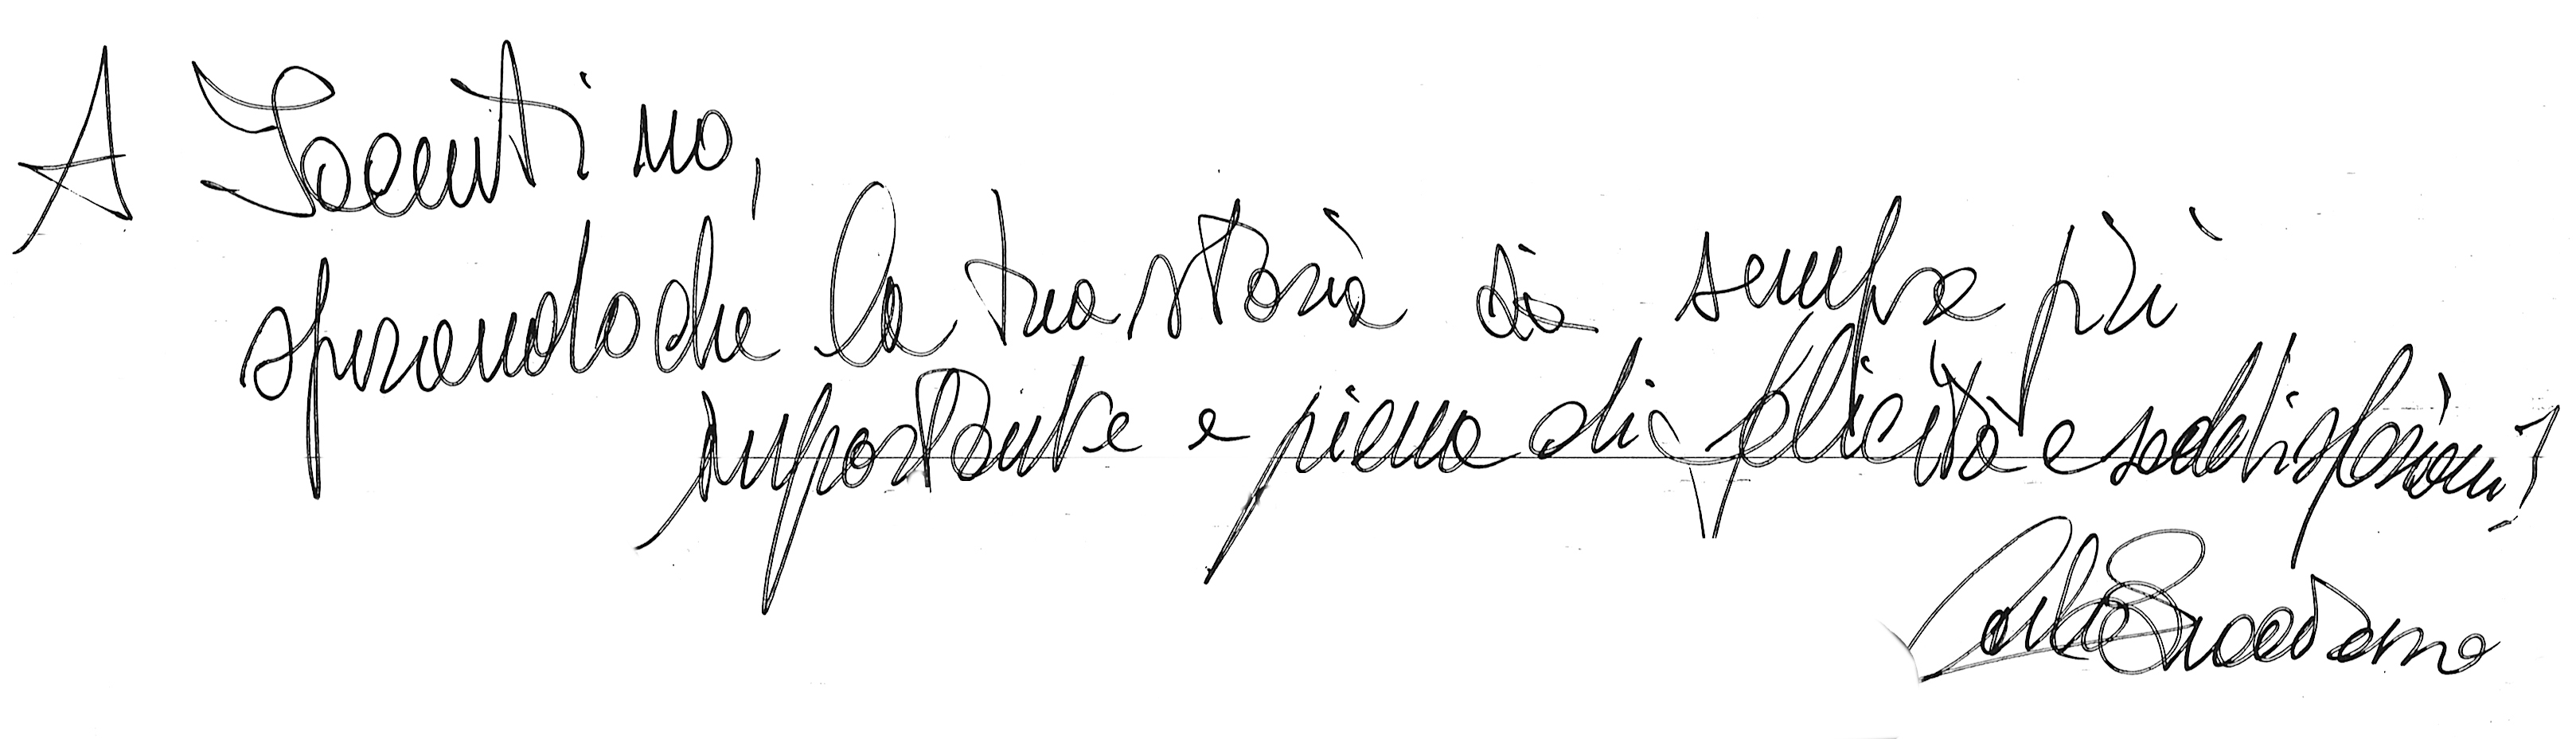 A
sperando che la tua storia sia sempre più
importante e piena di felicità e soddisfazioni!